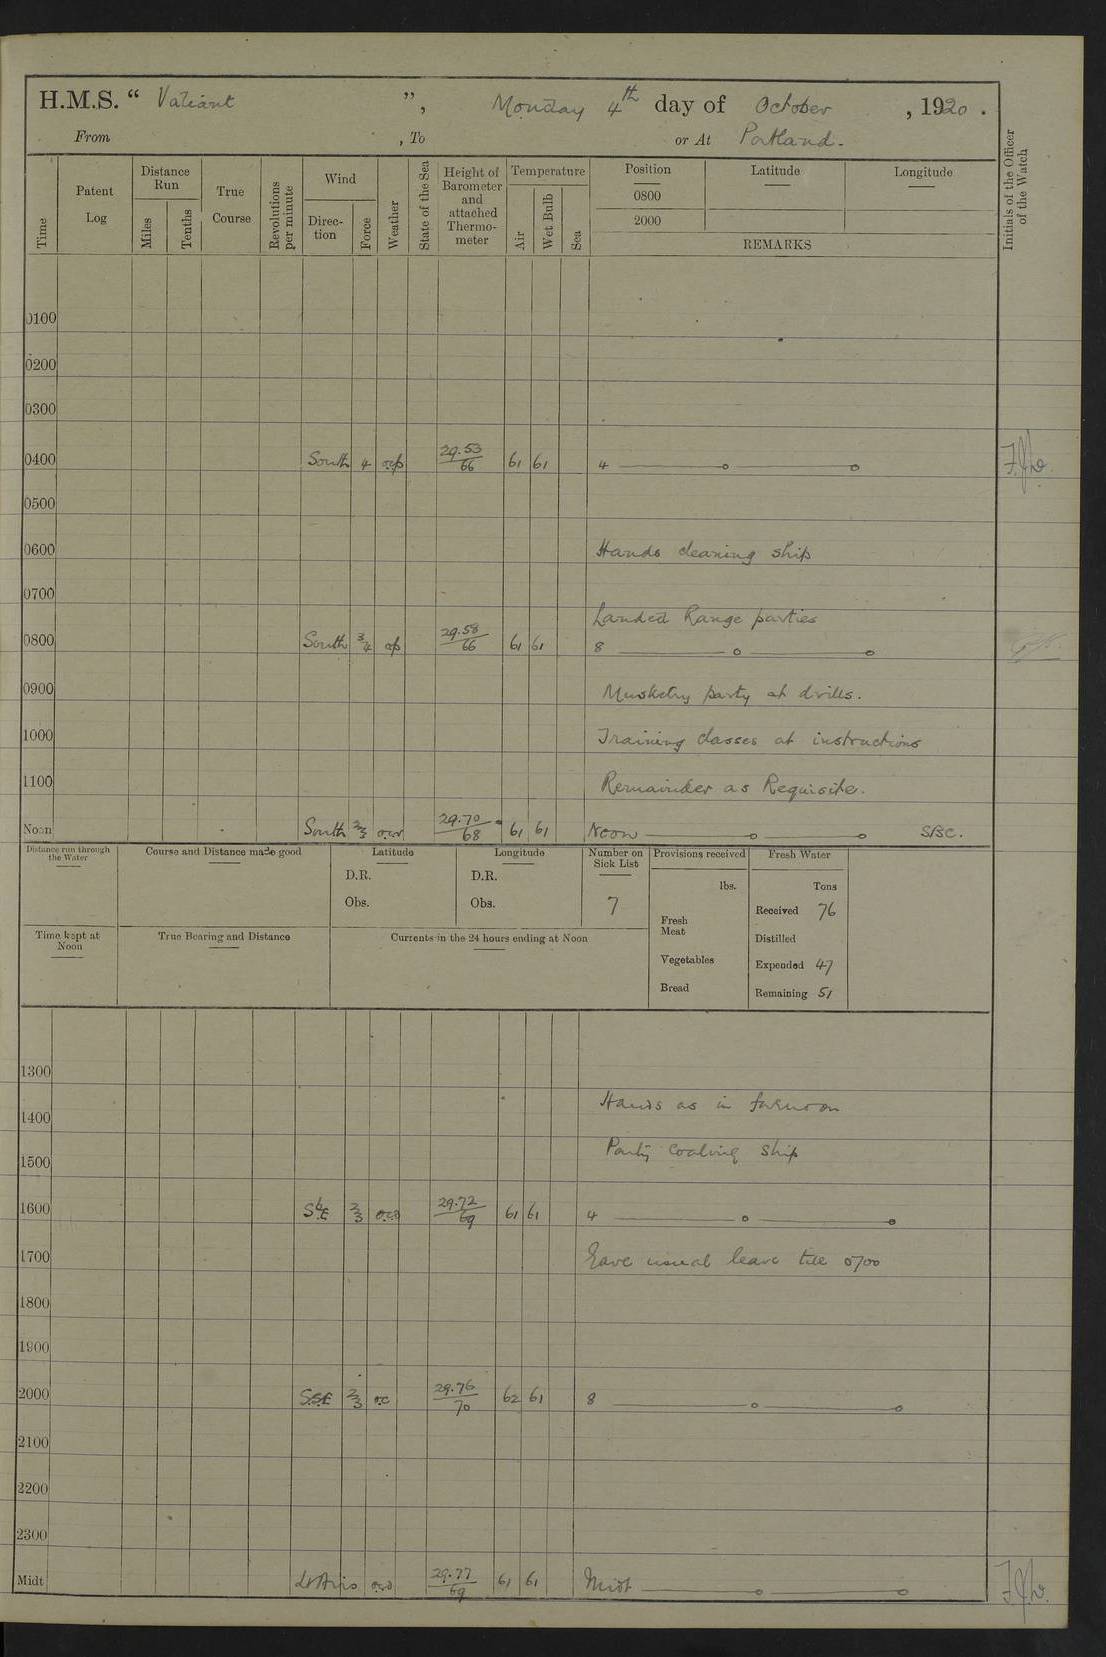 H.M.S. “ Valiant ”, Monday 4th day of October , 1920 .
From , To or At Portland.
Time
Patent Log
Distance Run
Miles
Tenths
True Course
Revolutions per minute
Wind
Direc-tion
Force
Weather
State of the Sea
Height of Barometer and attached Thermo-meter
Temperature
Air
Wet Bulb
Sea
Position
Latitude
Longitude
0800
2000
REMARKS
Initials of the Officer of the Watch
0100
0200
0300
0400 South 4 29.53/66 61 61 4
0500
0600 Hands cleaning ship
0700
Landed Range parties
0800 South 3/4 29.58/66 61 61 8
0900 Musketry party at drills.
1000 Training classes at instructions
1100 Remainder as Requisite.
Noon South 2/3 29.70/68 61 61 Noon SBC.
Distance run through the Water
Course and Distance made good
Latitude
D.R.
Obs.
Longitude
D.R.
Obs.
Number on Sick List
7
Provisions received
lbs.
Fresh Meat
Vegetables
Bread
Fresh Water
Tons
Received 76
Distilled
Expended 47
Remaining 51
Time kept at Noon
True Bearing and Distance
Currents in the 24 hours ending at Noon
1300
Hands as in forenoon
1400
Party coaling ship
1500
1600 SbE 2/3 29.72/69 61 61 4
1700 Gave usual leave till 0700
1800
1900
2000 SSE 2/3 oc 29.76/70 62 61 8
2100
2200
2300
Midt Lt Airs 29.77/69 61 61 Midt